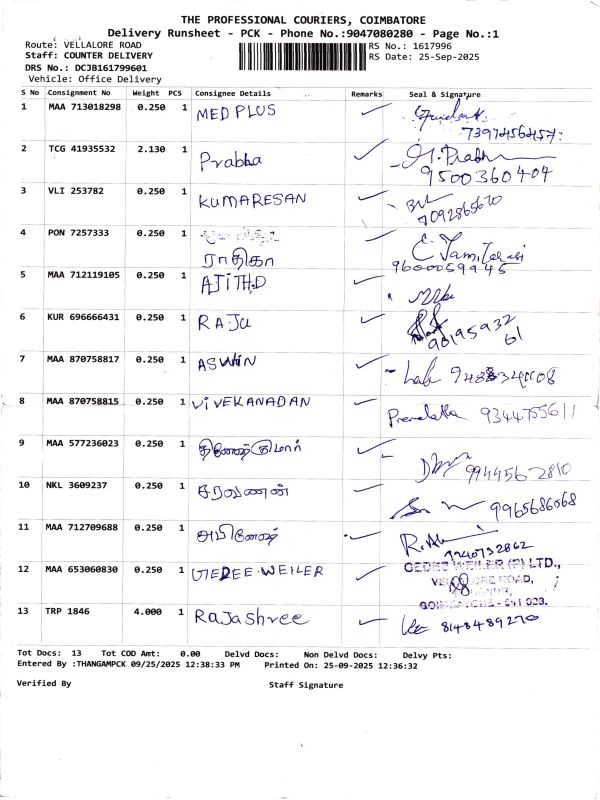 THE PROFESSIONAL COURIERS, COIMBATORE
Delivery Runsheet - PCK - Phone No.:9047080280 - Page No.:1
Route: VELLALORE ROAD
RS No.: 1617996
Staff: COUNTER DELIVERY
RS Date: 25-Sep-2025
DRS No.: DCJB161799601
Vehicle: Office Delivery
S No Consignment No Weight PCS Consignee Details Remarks Seal & Signature
1 MAA 713018298 0.250 1 MEDPLUS
7397456457
2 TCG 41935532 2.130 1 Prabha
9500360404
3 VLI 253782 0.250 1 KUMARESAN
7092865670
4 PON 7257333 0.250 1
ராதிகா
9600059945
5 MAA 712119105 0.250 1 AJITH.D
6 KUR 696666431 0.250 1 RAJU
7 MAA 870758817 0.250 1 ASWIN
8 MAA 870758815 0.250 1 VIVEKANADAN
9344755611
9 MAA 577236023 0.250 1 தினேஷ்குமார்
10 NKL 3609237 0.250 1 சரவணன்
9965686068
11 MAA 712709688 0.250 1 அபினேஷ்
12 MAA 653060830 0.250 1 GEDEE WEILER
GEDEE WEILER (P) LTD.,
ROAD,
13 TRP 1846 4.000 1 Rajashree
8148489270
Tot Docs: 13 Tot COD Amt: 0.00 Delvd Docs: Non Delvd Docs: Delvy Pts:
Entered By :THANGAMPCK 09/25/2025 12:38:33 PM Printed On: 25-09-2025 12:36:32
Verified By Staff Signature